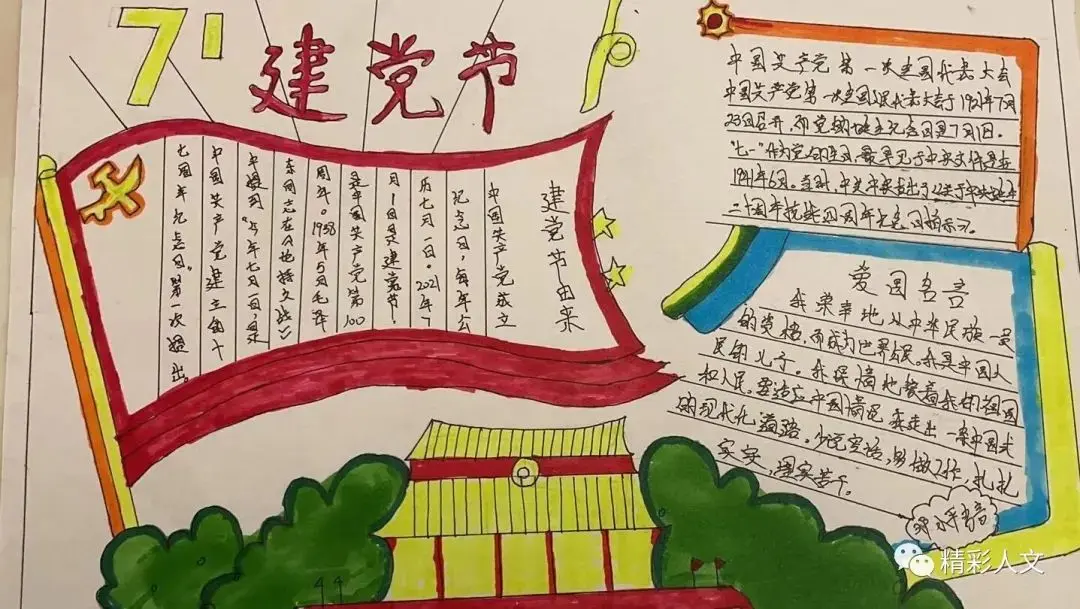 71
建党节
建党节由来
中国共产党成立
纪念日,每年公
历七月一日。2021年7
月1日是建党节!
是中国共产党第100
周年。1938年5月毛泽
东同志在《论持久战》
中提到“今年七月一日,是
中国共产党建立的十
七周年纪念日”第一次提出。
中国共产党第一次全国代表大会
中国共产党第一次全国代表大会于1921年7月
23日召开,而党的诞生纪念日是7月1日。
“七一”作为党的生日,最早见于中央文件是在
1941年6月。当时,中共中央发出了《关于中共诞生
二十周年抗战四周年纪念日指示》。
爱国名言
我荣幸地从中华民族一员
的资格,而成为世界公民。我是中国人
民的儿子。我深情地爱着我的祖国
和人民。要适应中国情况,我走出一条中国式
的现代化道路。少说空话,多做工作,扎扎
实实,埋头苦干。
邓小平
精彩人文